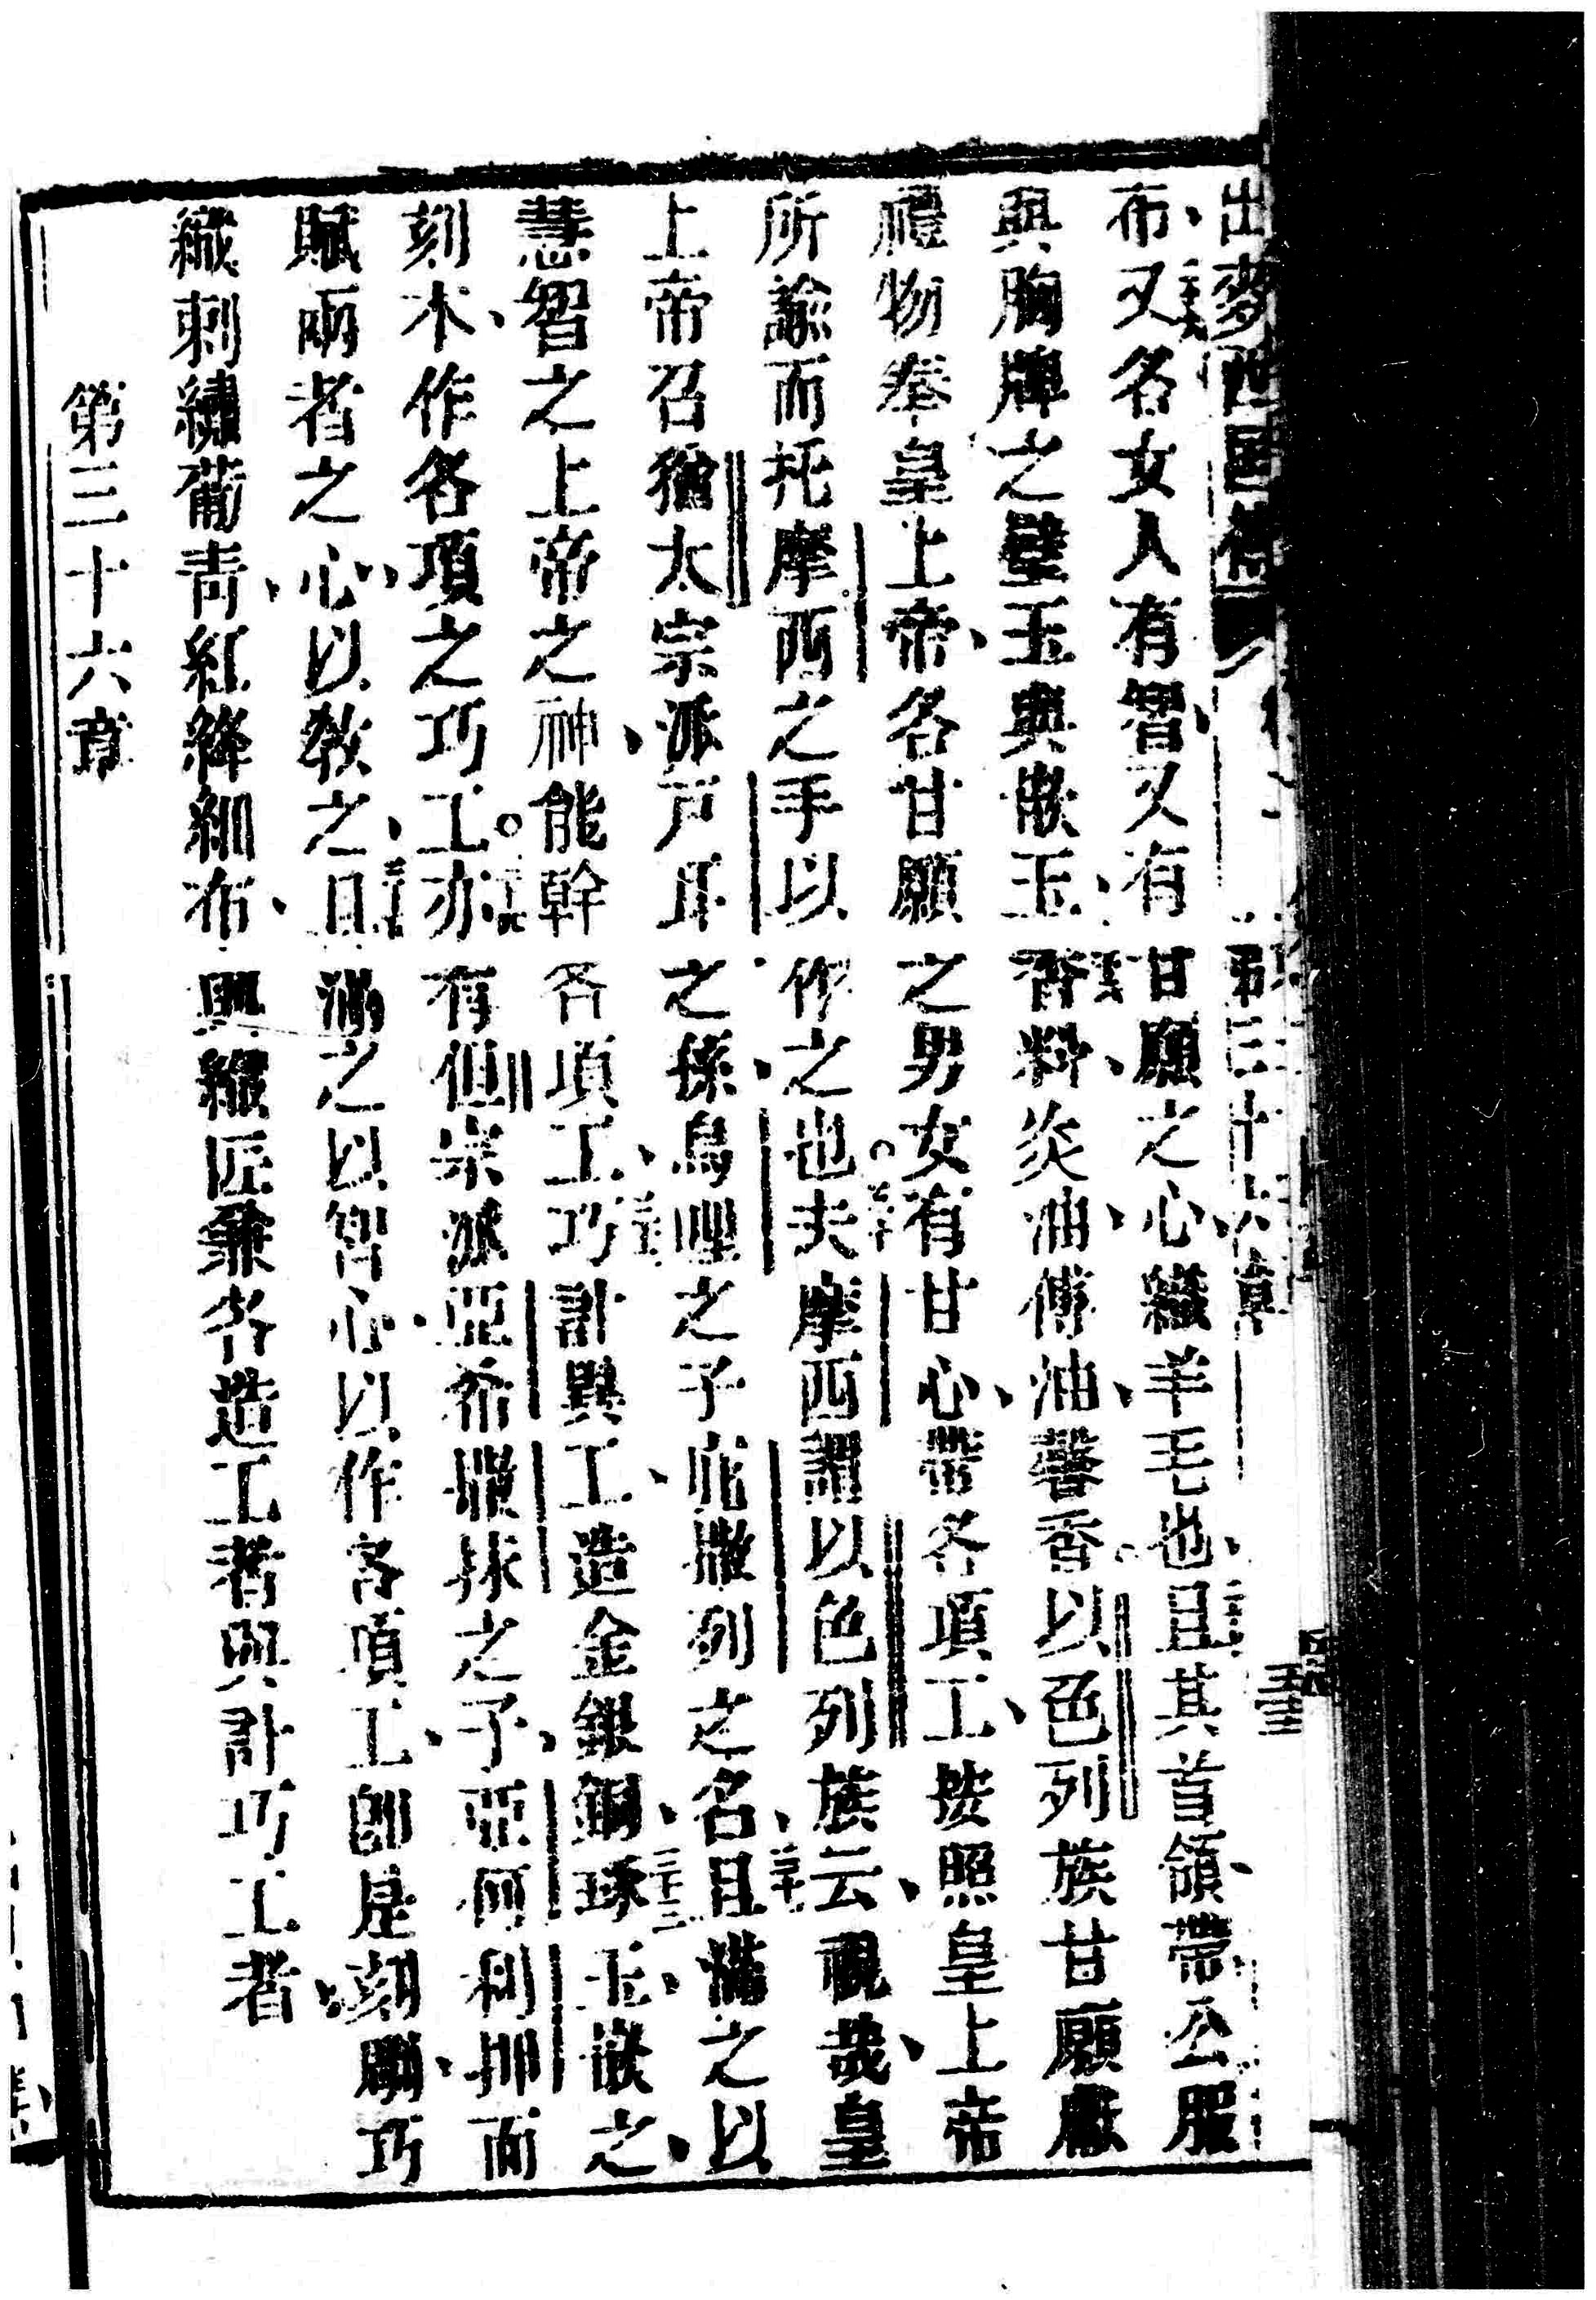 出麥西國傳 第三十六章
布、又各女人有智、又有甘願之心、織羊毛也、且其首領帶公服
與胸牌之璧玉與嵌玉、香料、炎油、傅油、馨香。以色列族甘願獻
禮物奉皇上帝、各甘願之男女有甘心、帶各項工、按照皇上帝
所諭而托摩西之手以作之也。夫摩西謂以色列族云、視哉、皇
上帝召猶太宗派戶耳之孫、烏哩之子庇撒列之名、且滿之以
慧智之上帝之神、能幹各項工、巧計異工、造金銀銅、琢玉、嵌之、
刻木、作各項之巧工。亦有但宗派亞希撒抹之子、亞何利押而
賦兩者之心、以教之、且滿之以智心、以作各項工、即是刻雕、巧
織刺繡葡青、紅絳細布、與織匠兼各造工者與計巧工者、
第三十六章